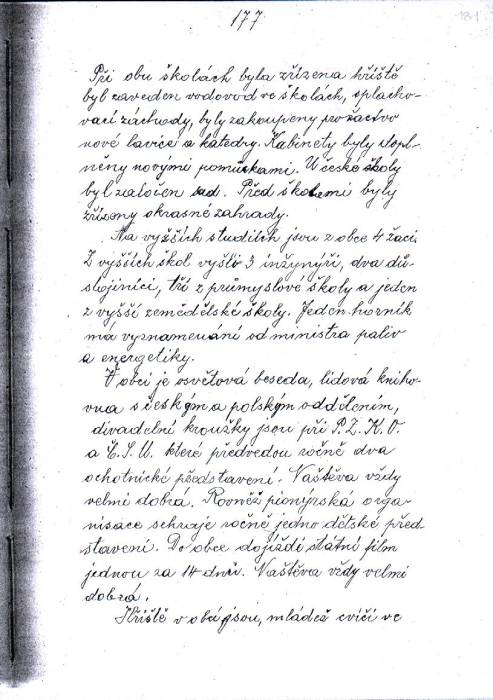 177
181
Při obu školách byla zřízena hřiště
byl zaveden vodovod ve školách, splacho-
vací záchody, byly zakoupeny pro žactvo
nové lavice a katedry. Kabinety byly dopl-
něny novými pomůckami. U české školy
byl založen sad. Před školami byly
zřízeny okrasné zahrady.
Na vyšších studiích jsou z obce 4 žáci.
Z vyšších škol vyšli 3 inžynýři, dva dů-
stojníci, tři z průmyslové školy a jeden
z vyšší zemědělské školy. Jeden horník
má vyznamenání od ministra paliv
a energetiky.
V obci je osvětová beseda, lidová kniho-
vna s českým a polským oddělením,
divadelní kroužky jsou při P.Z.K.O.
a Č.S.M. které předvedou ročně dva
ochotnické představení. Návštěva vždy
velmi dobrá. Rovněž pionýrská orga-
nisace sehraje ročně jedno dětské před-
stavení. Do obce dojíždí státní film
jednou za 14 dnů. Návštěva vždy velmi
dobrá.
Hřiště v obci jsou, mládež cvičí ve